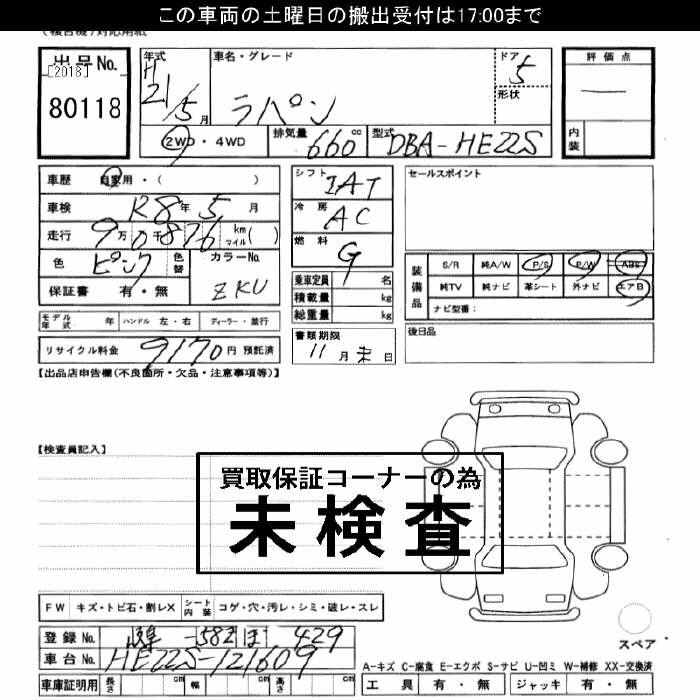 この車両の土曜日の搬出受付は17:00まで
出品No.
[2018]
80118
年式
H
21/5月
車名・グレード
ラパン
ドア
5
形状
評価点
内装
2WD・4WD
排気量 660 cc
型式 DBA-HE22S
車歴 自家用・( )
車検 R8年5月
走行 9万0千876 km マイル( )
色 ピンク 色替
カラーNo. ZKU
保証書 有・無
シフト IAT
冷房 AC
燃料 G
乗車定員 名
積載量 kg
総重量 kg
セールスポイント
装備品
S/R 純A/W P/S P/W ABS
純TV 純ナビ 革シート 外ナビ エアB
ナビ型番:
モデル年式 年 ハンドル 左・右 ディーラー・並行
リサイクル料金 9170円 預託済
書類期限
11月末日
後日品
【出品店申告欄(不良箇所・欠品・注意事項等)】
【検査員記入】
買取保証コーナーの為
未検査
FW キズ・トビ石・割レX シート内装 コゲ・穴・汚レ・シミ・破レ・スレ
登録No. 582 ほ 429
車台No. HE22S-121609
車庫証明用 長さ cm 幅 cm 高さ cm
スペア
A-キズ C-腐食 E-エクボ S-サビ U-凹ミ W-補修 XX-交換済
工具 有・無 ジャッキ 有・無